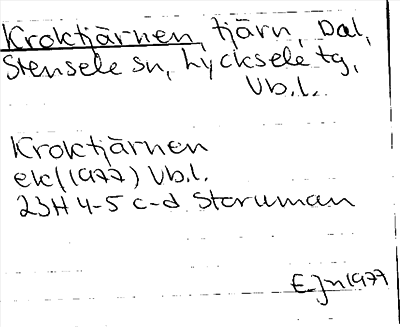 Kroktjärnen, tjärn, Dal,
Stensele sn, Lycksele tg,
Vb.l.
Kroktjärnen
ek (1977) Vb.l.
23H 4-5 c-d Storuman
E.Jn 1977